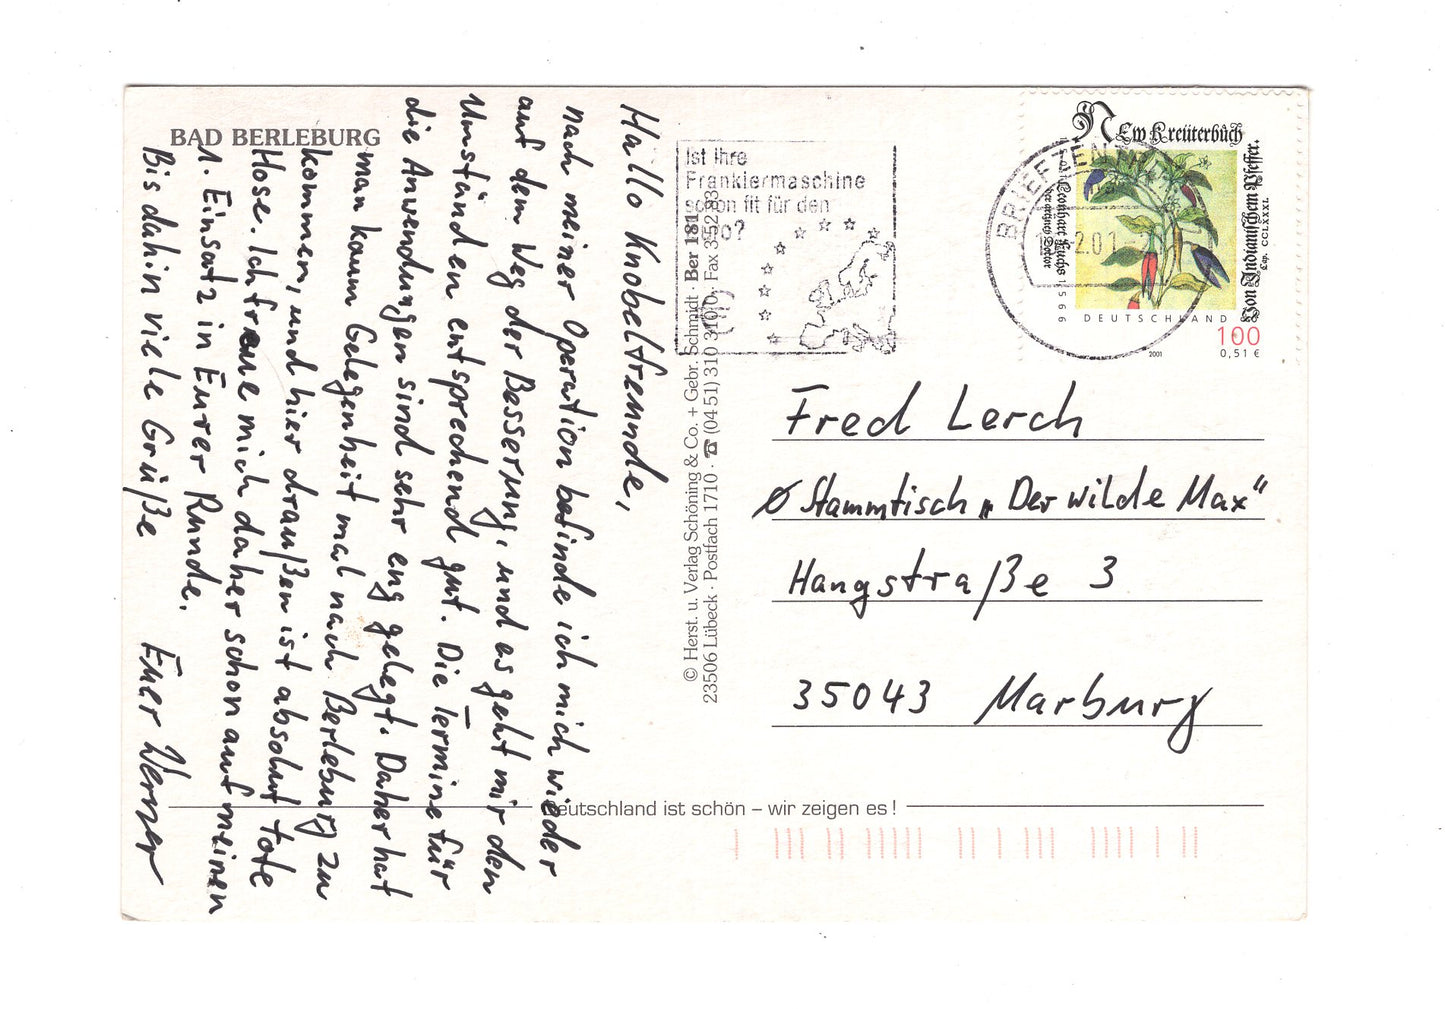 BAD BERLEBURG
Hallo Knobelfreunde,
nach meiner Operation befinde ich mich wieder
auf dem Weg der Besserung, und es geht mir den
Umständen entsprechend gut. Die Termine für
die Anwendungen sind sehr eng gelegt. Daher hat
man kaum Gelegenheit mal nach Berleburg zu
kommen, und hier draußen ist absolut tote
Hose. Ich freue mich daher schon auf meinen
1. Einsatz in Eurer Runde.
Bis dahin viele Grüße Euer Werner
© Herst. u. Verlag Schöning & Co. + Gebr. Schmidt · Ber 181
23506 Lübeck · Postfach 1710 · ☎ (04 51) 310 310, Fax 3 52 83
Ist Ihre
Frankiermaschine
schon fit für den
BRIEFZENTRUM
2.01
New Kreüterbüch
Von Indianischem Pfeffer.
Cap. CCLXXXI.
Leonhart Fuchs 1566
der artzney Doctor
DEUTSCHLAND
100
0,51 €
2001
Fred Lerch
Stammtisch „Der wilde Max"
Hangstraße 3
35043 Marburg
Deutschland ist schön – wir zeigen es !